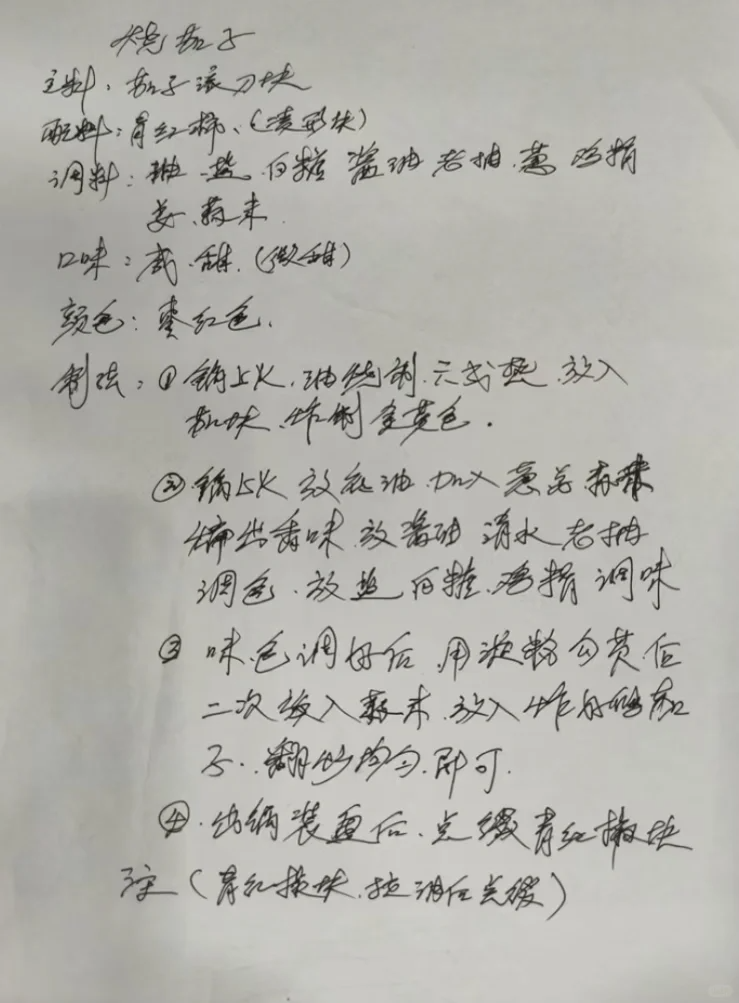 烧茄子
主料：茄子滚刀块
配料：青红椒、(菱形块)
调料：油 盐 白糖 酱油 老抽 葱 鸡精
姜、蒜末
口味：咸、甜.(微甜)
颜色：枣红色.
制法：①锅上火、油烧制、六成热、放入
茄块、炸制金黄色.
②锅上火 放底油 加入葱姜蒜末
煸出香味 放酱油 清水老抽
调色、放盐 白糖、鸡精 调味
③ 味、色调好后 用淀粉勾芡后
二次放入蒜末、放入炸好的茄
子、翻炒均匀、即可.
④、出锅装盘后、点缀青红椒块
注(青红椒块、拉油后点缀)